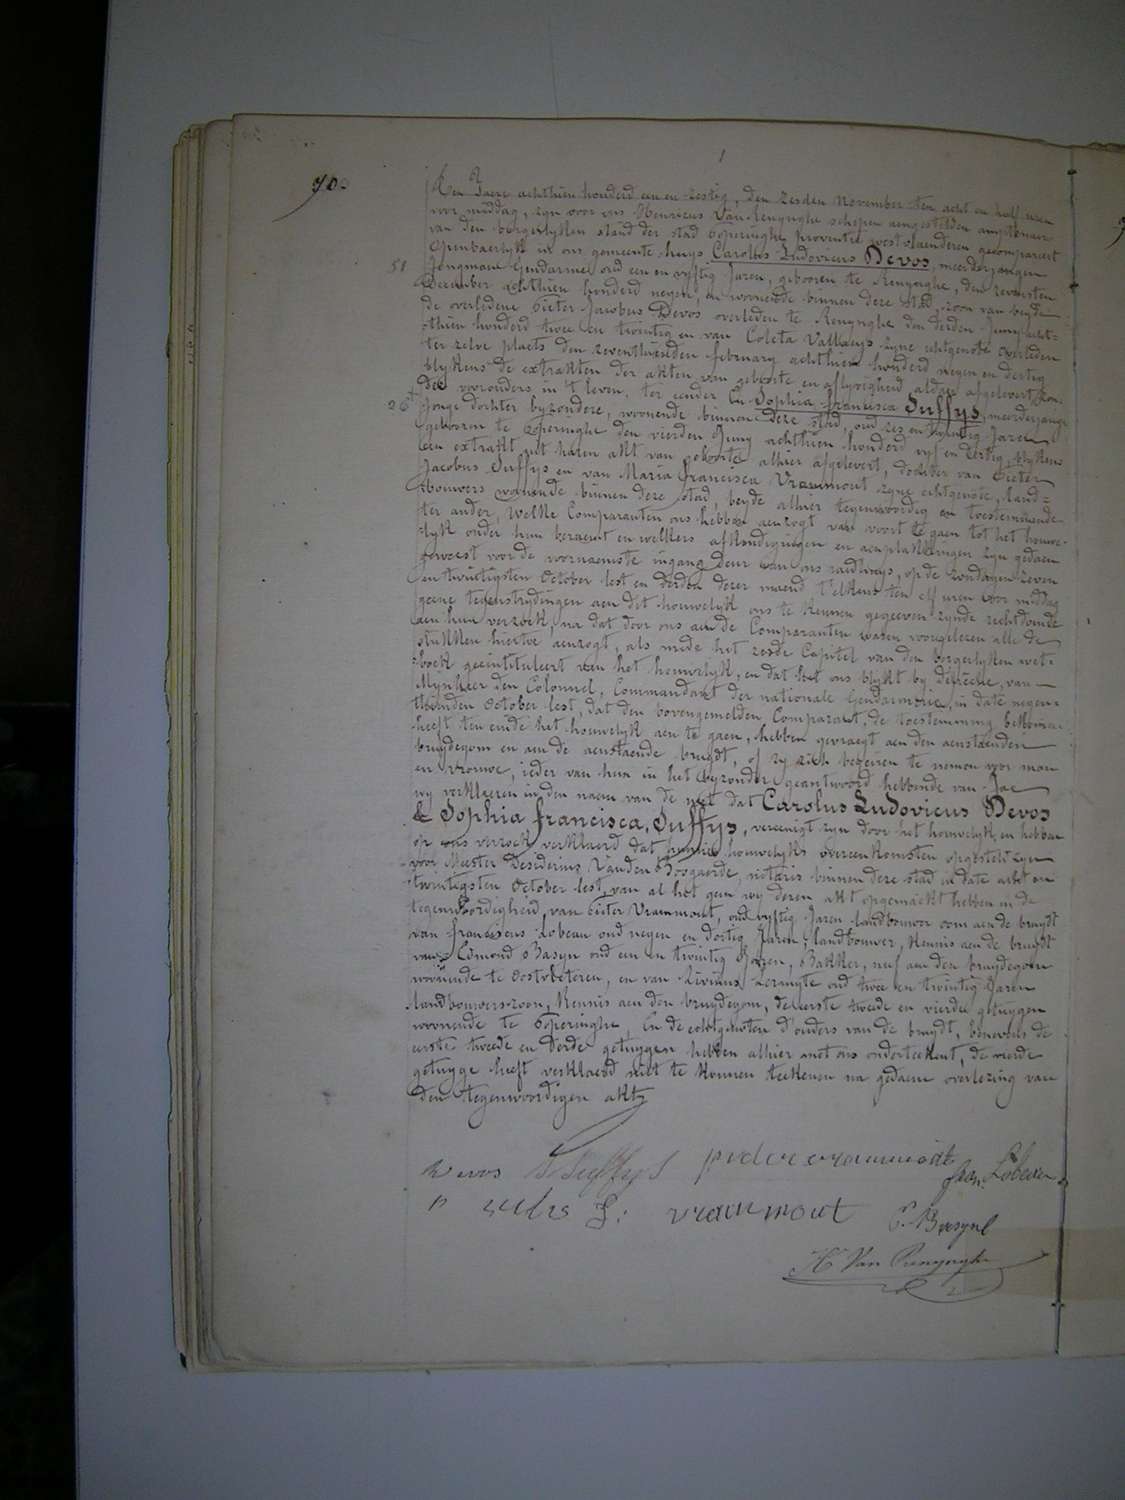 90.
Den Jaere achthien honderd een en zestig, den zesden November ten acht en half uren
voor middag, zyn voor ons Henricus Van Renynghe schepen aengestelden amptenaer
van den borgerlyken stand der stad Poperinghe provintie westvlaenderen gecompareert
Openbaerlyk in ons gemeente huys Carolus Ludovicus Devos, meerderjaerigen
51 Jongman Gendarme oud een en vyftig Jaren, geboren te Renynghe, den zevensten
December achthien honderd negen, en woonende binnen deze stad, zoon van beyde
de overledene Pieter Jacobus Devos overleden te Renynghe den derden Juny acht-
thien honderd twee en twintig en van Coleta Vallaeys zyne echtgenote overleden
ter zelve plaets den zeventhienden february achthien honderd negen en dertig
blykens de extrakten der akten van geboorte en aflyvigheid aldaer afgelevert
der voorouders in 't leven, ter eender En Sophia francisca Suffys, meerderjarige
26 Jonge dochter byzondere, woonende binnen deze stad, oud zes en twintig Jaren
geboren te Poperinghe den vierden Juny achthien honderd vyf en dertig, blykens
een extrakt uit haren akt van geboorte alhier afgelevert, dochter van Pieter
Jacobus Suffys en van Maria francisca Vrammout zyne echtgenote, land-
bouwers woonende binnen deze stad, beyde alhier tegenwoordig en toestemmende
ter ander, Welke Comparanten ons hebben aenzogt van voort te gaen tot het houwe-
lyk onder hun beraemt en welkers afkondigingen en aenplakkingen zyn gedaen
geweest voor de voornaemste ingang deur van ons raedhuys, op de zondagen zeven
en twintigsten October lest en derden dezer maend t'elkens ten elf uren voor middag
geene tegenstrydingen aen dit houwelyk ons te kennen gegeeven zynde rechtdoende
aen hun verzoek, na dat door ons aen de Comparanten waren voorgelezen alle de
stukken hiertoe aenzogt, als mede het zesde Capitel van den borgerlyken wet-
boek geeintituleert van het houwelyk, en dat het ons blykt by depeche, van
Mynheer den Colonnel, Commandant der nationale Gendarmerie, in date negen-
thienden October lest, dat den bovengemelden Comparant, de toestemming bekomen
heeft ten einde het houwelyk aen te gaen, hebben gevraegt aen den aenstaenden
bruydegom en aen de aenstaende bruydt, of zy zich begeiren te nemen voor man
en vrouwe, ieder van hun in het byzonder geantwoord hebbende van Jae
wy verklaeren in den naem van de wet dat Carolus Ludovicus Devos
& Sophia francisca, Suffys, vereenigt zyn door het houwelyk, en hebben
op ons verzoek verklaerd dat hunne houwelyks overeenkomsten opgesteld zyn
voor Meester Desiderius Vanden Bogaerde, notaris binnen deze stad in date acht en
twintigsten October lest, van al het gene wy dezen akt opgemaekt hebben in de
tegenwoordigheid, van Pieter Vrammout, oud vyftig Jaren landbouwer oom aen de bruydt
van franciscus Lobeau oud negen en dertig Jaren, landbouwer, kennis aen de bruydt
van Edmond Basyn oud een en twintig Jaren, Bakker, neef aen den bruydegom
woonende te Oostvleteren, en van Livinus Lermyte oud twee en twintig Jaren
landbouwers zoon, kennis aen den bruydegom, de eerste tweede en vierde getuygen
woonende te Poperinghe, En de echtgenoten d'ouders van de bruydt, benevens de
eerste tweede en derde getuygen hebben alhier met ons onderteekent, de vierde
getuyge heeft verklaerd niet te konnen teekenen na gedaene overlezing van
den tegenwoordigen akt.
Devos S. Suffys pieder vrammout fran. Lobeau
vrammout E. Basyn
H. Van Renynghe